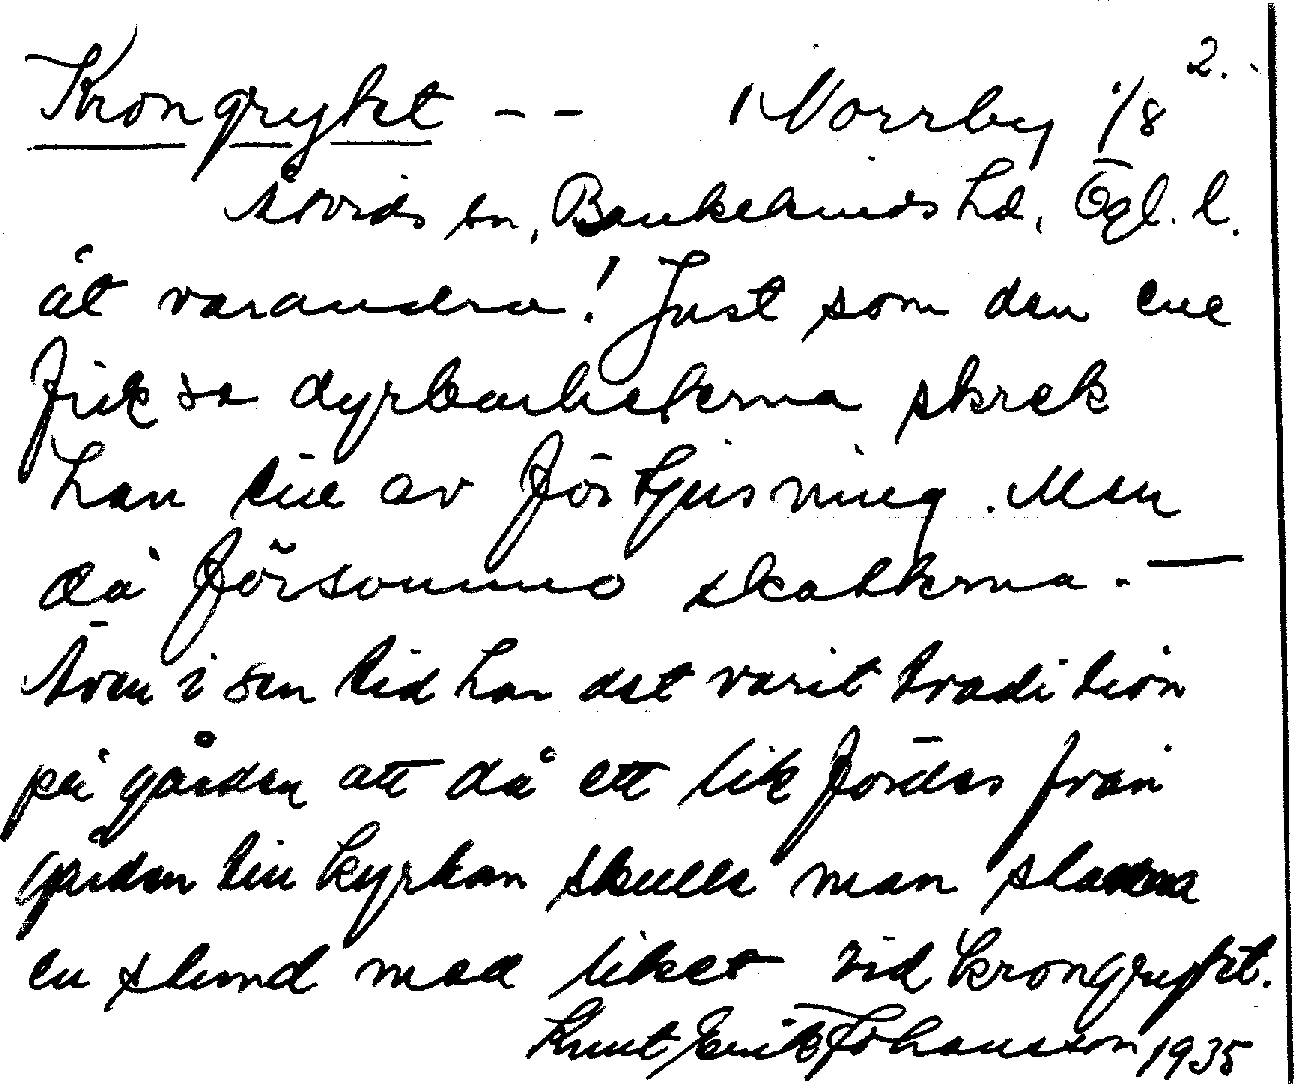 2.
Krongrytet -- Norrby 1/8
Åtvids sn, Bankekinds hd, Ögl. l.
åt varandra! Just som den ene
fick se dyrbarheterna skrek
han till av förtjusning. Men
då försvunno skatterna. —
Även i sen tid har det varit tradition
på gården att då ett lik fördes från
gården till kyrkan skulle man stanna
en stund med liket vid krongrytet.
Knut Erik Johansson 1935